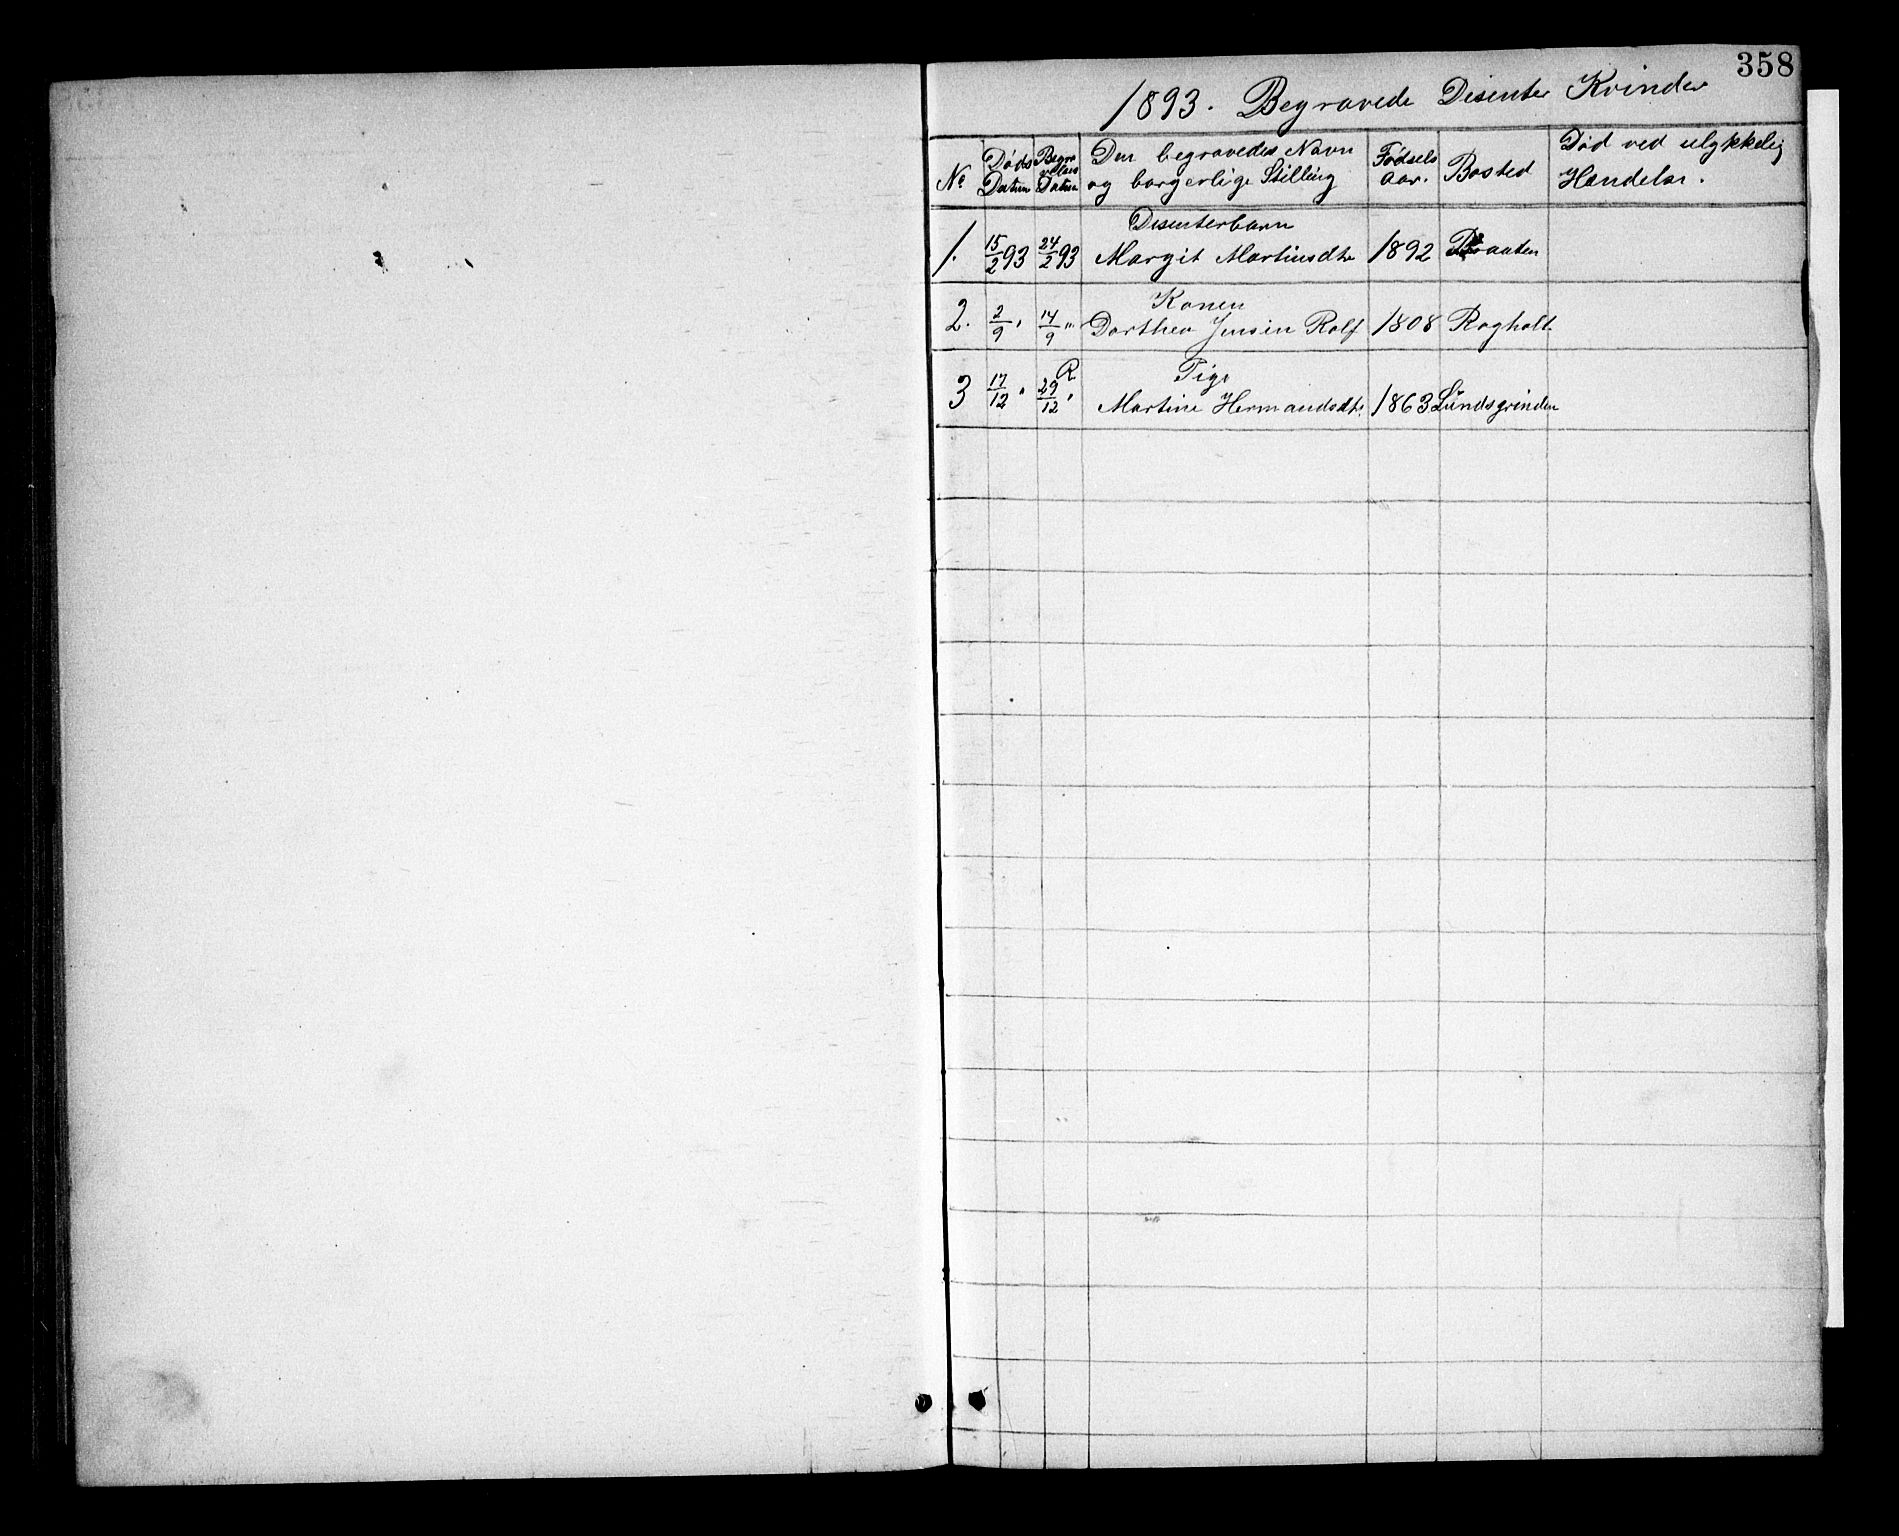 358
1893. Begravede Disenter Kvinder
No Døds Datum Begravelses Datum Den begravedes Navn og borgerlige Stilling Fødsels aar. Bosted Død ved ulykkelig Hændelse.
Disenterbarn
1. 15/2 93 24/2 93 Margit Martinsdtr 1892 Braaten
Konen
2. 2/9 " 14/9 " Dorthea Jensen Rolf 1808 Rogholt
R Pige
3 17/12 " 29/12 " Martine Hermandsdtr. 1863 Lundsgrinden